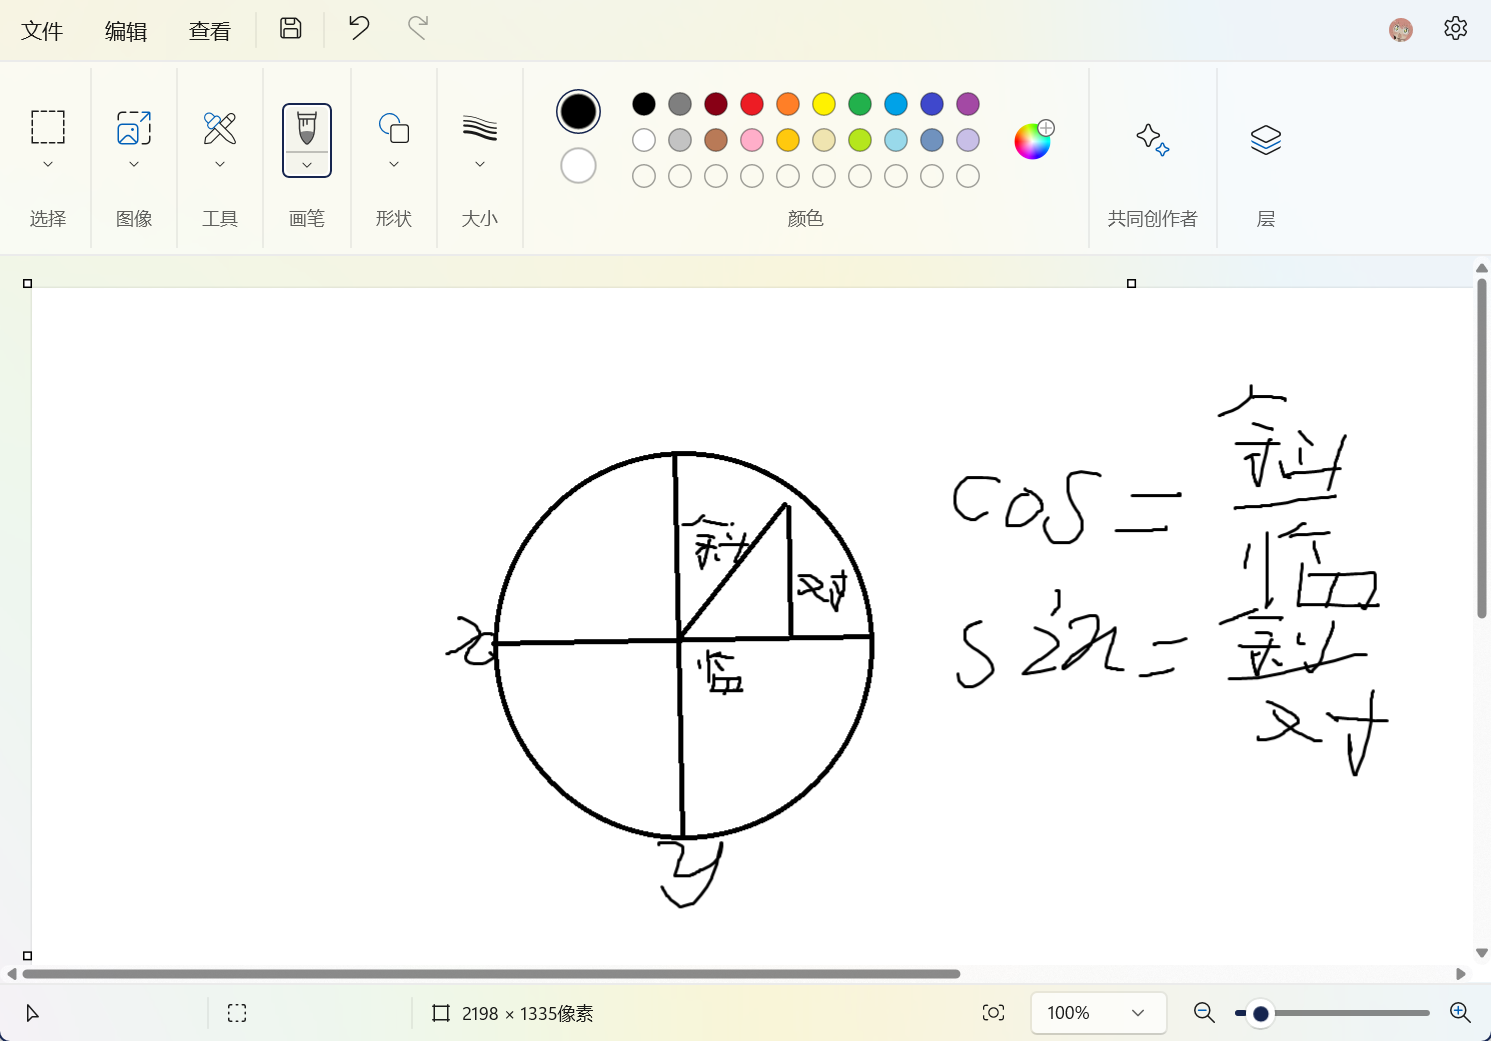 文件 编辑 查看
选择 图像 工具 画笔 形状 大小 颜色 共同创作者 层
斜
cos =
临
斜 对
斜
x sin =
临 对
y
2198 × 1335像素 100%